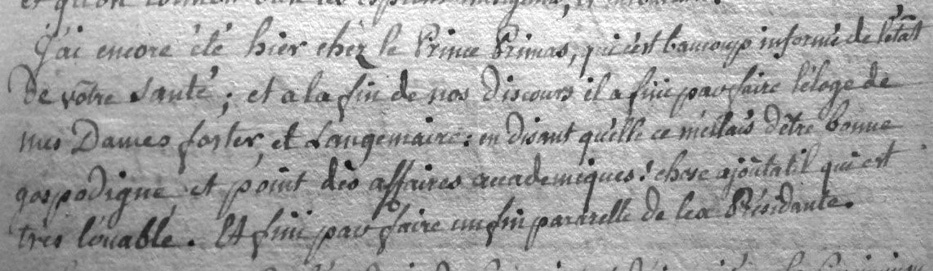 J'ai encore été hier chez le Prince Primas, qui s'est baucoup informé de l'état
de vôtre santé; et a la fin de nos discours il a fini par faire l'éloge de
mes Dames forster, et Langemaire: en disant qu'elle ce mellais d'être bonne
gospodigne et point des affaires accademiques! chose ajoutatil qui est
très loüable. Et fini par faire un fin pararelle de lex Présidante.